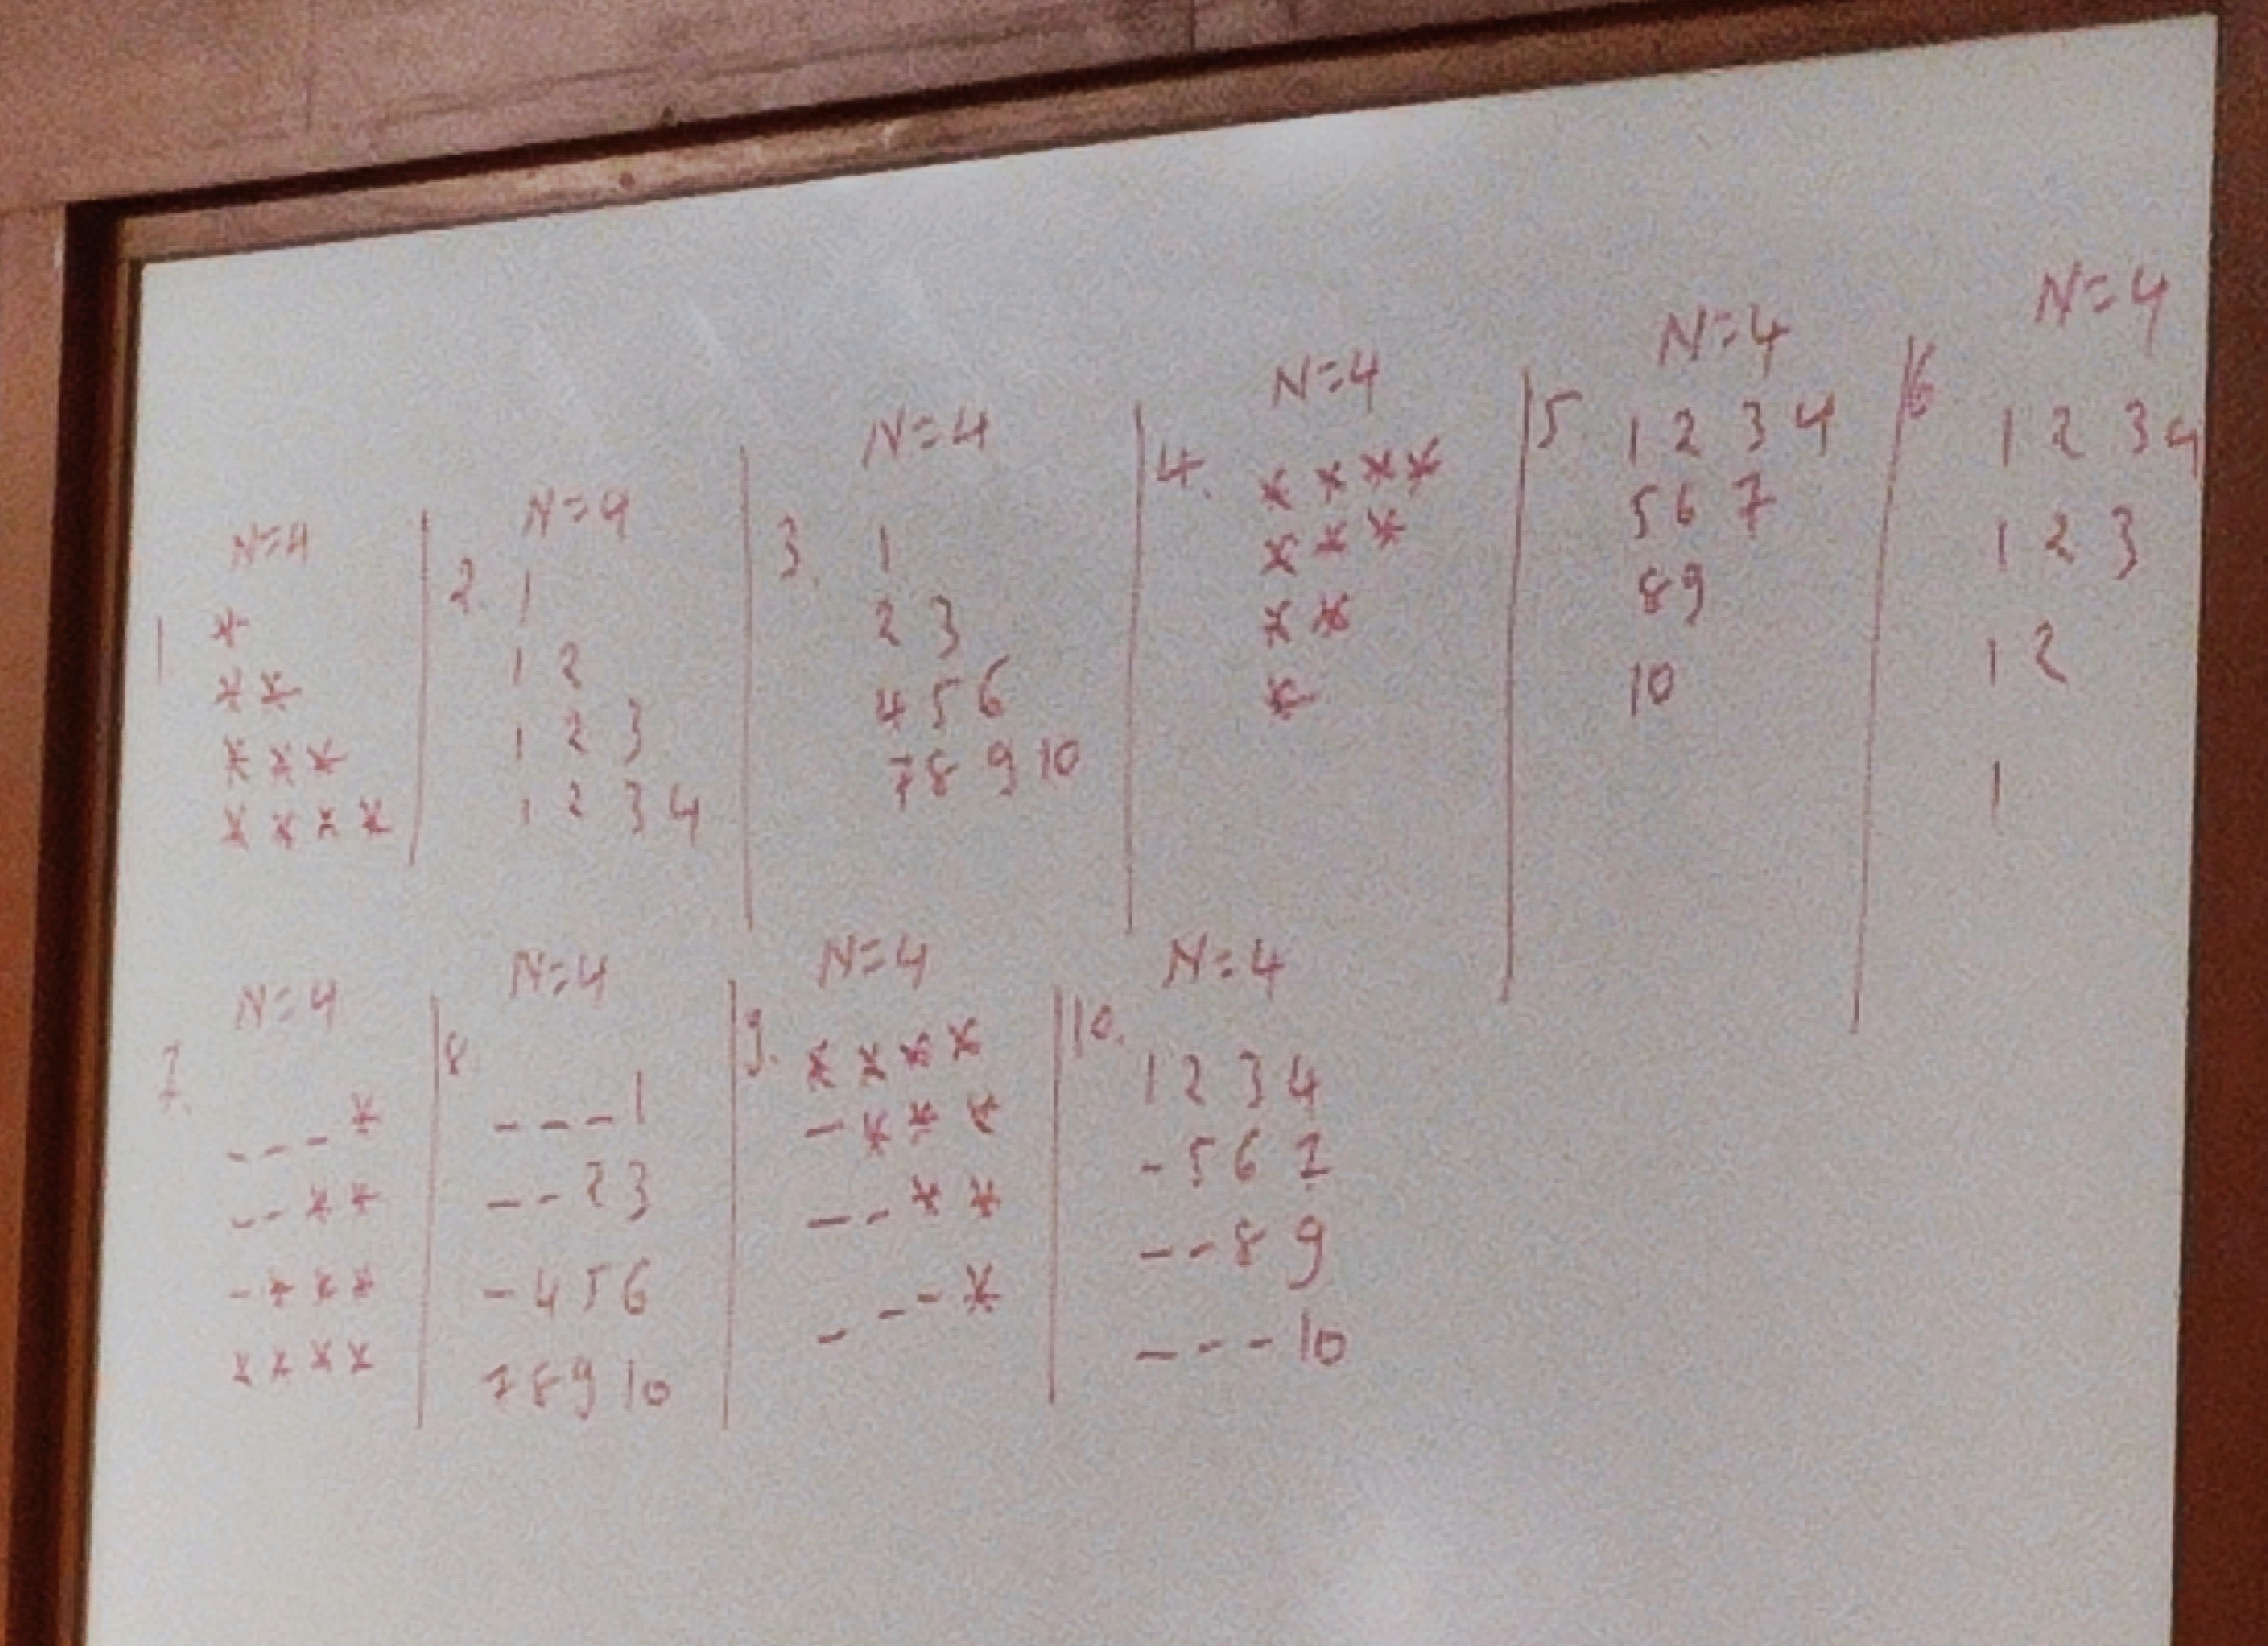 N=4
1 *
* *
* * *
* * * *
N=4
2. 1
1 2
1 2 3
1 2 3 4
N=4
3. 1
2 3
4 5 6
7 8 9 10
N=4
4. * * * *
* * *
* *
*
N=4
5. 1 2 3 4
5 6 7
8 9
10
N=4
6 1 2 3 4
1 2 3
1 2
1
N=4
7.
- - - *
- - * *
- * * *
* * * *
N=4
8.
- - - 1
- - 2 3
- 4 5 6
7 8 9 10
N=4
9. * * * *
- * * *
- - * *
- - - *
N=4
10.
1 2 3 4
- 5 6 7
- - 8 9
- - - 10